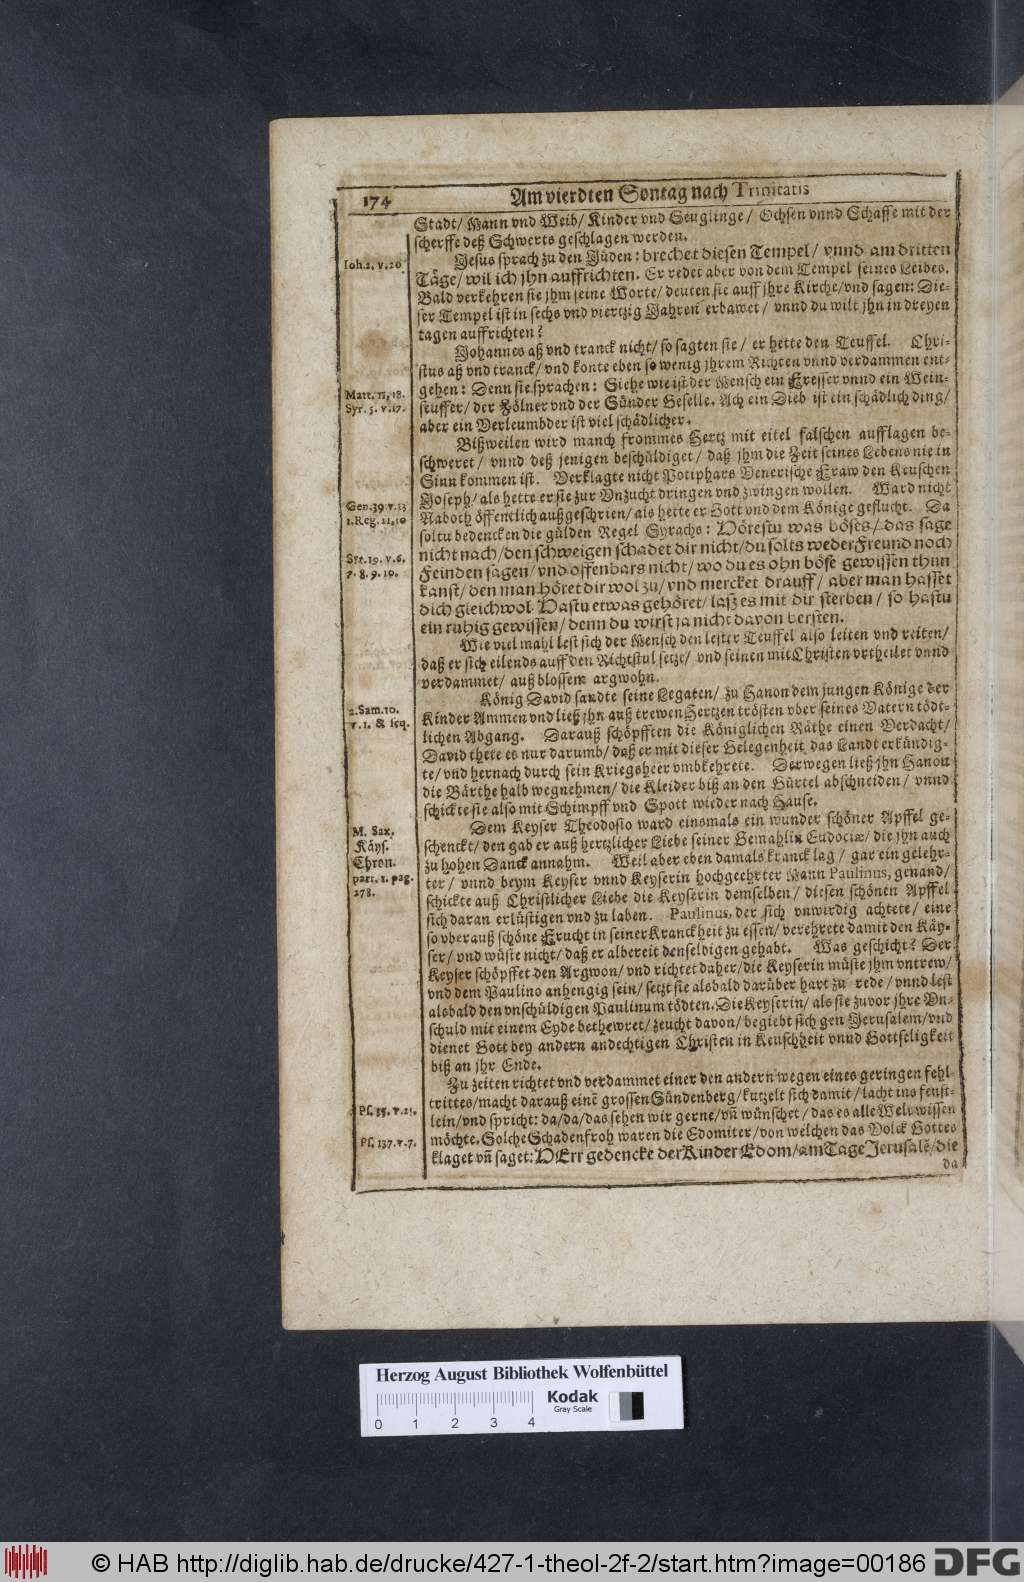 174
Am vierdten Sontag nach Trinitatis
Stadt/ Mann vnd Weib/ Kinder vnd Seuglinge/ Ochsen vnnd Schaffe mit der
scherffe deß Schwerts geschlagen werden.
Ioh.2. v.20
Jesus sprach zu den Jüden: brechet diesen Tempel/ vnnd am dritten
Tage/ wil ich jhn auffrichten. Er redet aber von dem Tempel seines Leibes.
Bald verkehren sie jhm seine Worte/ deuten sie auff jhre Kirche/ vnd sagen: Die-
ser Tempel ist in sechs vnd viertzig Jahren erbawet/ vnnd du wilt jhn in dreyen
tagen auffrichten?
Johannes aß vnd tranck nicht/ so sagten sie/ er hette den Teuffel. Chri-
stus aß vnd tranck/ vnd konte eben so wenig jhrem Richten vnnd verdammen ent-
Matt. 11, 18.
gehen: Denn sie sprachen: Siehe wie ist der Mensch ein Fresser vnnd ein Wein-
Syr. 5. v.17.
seuffer/ der Zölner vnd der Sünder Geselle. Ach ein Dieb ist ein schädlich ding/
aber ein Verleumbder ist viel schädlicher.
Bißweilen wird manch frommes Hertz mit eitel falschen aufflagen be-
schweret/ vnnd deß jenigen beschüldiget/ daß jhm die Zeit seines Lebens nie in
Sinn kommen ist. Verklagte nicht Potiphars Venerische Fraw den Keuschen
Gen.39 v.13
Joseph/ als hette er sie zur Vnzucht dringen vnd zwingen wollen. Ward nicht
1.Reg.21,10
Naboth öffentlich außgeschrien/ als hette er Gott vnd dem Könige geflucht. Da
soltu bedencken die gülden Regel Syrachs: Hörestu was böses/ das sage
Syr.19. v.6.
nicht nach/ den schweigen schadet dir nicht/ du solts weder Freund noch
7. 8. 9. 10.
Feinden sagen/ vnd offenbars nicht/ wo du es ohn böse gewissen thun
kanst/ den man höret dir wol zu/ vnd mercket drauff/ aber man hasset
dich gleichwol. Hastu etwas gehöret/ laß es mit dir sterben/ so hastu
ein ruhig gewissen/ denn du wirst ja nicht davon bersten.
Wie viel mahl lest sich der Mensch den lester Teuffel also leiten vnd reiten/
daß er sich eilends auff den Richtstul setze/ vnd seinen mit Christen vrtheilet vnnd
verdammet/ auß blossem argwohn.
2.Sam.10.
König David sandte seine Legaten/ zu Hanon dem jungen Könige der
v. 1. & seq.
Kinder Ammen vnd ließ jhn auß trewen Hertzen trösten vber seines Vatern tödt-
lichen Abgang. Darauß schöpfften die Königlichen Räthe einen Verdacht/
David thete es nur darumb/ daß er mit dieser Gelegenheit das Landt erkündig-
te/ vnd hernach durch sein Kriegsheer vmbkehrete. Derwegen ließ jhn Hanon
die Bärthe halb wegnehmen/ die Kleider biß an den Gürtel abschneiden/ vnnd
schickte sie also mit Schimpff vnd Spott wieder nach Hause.
M. Sax.
Käys.
Chron.
part. 1. pag.
278.
Dem Keyser Theodosio ward einsmals ein wunder schöner Apffel ge-
schenckt/ den gab er auß hertzlicher Liebe seiner Gemahlin Eudociæ/ die jhn auch
zu hohen Danck annahm. Weil aber eben damals kranck lag/ gar ein gelehr-
ter/ vnnd beym Keyser vnnd Keyserin hochgeehrter Mann Paulinus, genand/
schickte auß Christlicher Liebe die Keyserin demselben/ diesen schönen Apffel
sich daran erlüstigen vnd zu laben. Paulinus, der sich vnwirdig achtete/ eine
so vberauß schöne Frucht in seiner Kranckheit zu essen/ verehrete damit den Käy-
ser/ vnd wüste nicht/ daß er albereit denselbigen gehabt. Was geschicht? Der
Keyser schöpffet den Argwon/ vnd richtet daher/ die Keyserin müste jhm vntrew/
vnd dem Paulino anhengig sein/ setzt sie alsbald darüber hart zu rede/ vnnd lest
alsbald den vnschüldigen Paulinum tödten. Die Keyserin/ als sie zuvor jhre Vn-
schuld mit einem Eyde bethewret/ zeucht davon/ begiebt sich gen Jerusalem/ vnd
dienet Gott bey andern andechtigen Christen in Keuschheit vnnd Gottseligkeit
biß an jhr Ende.
Zu zeiten richtet vnd verdammet einer den andern wegen eines geringen fehl-
trittes/ macht darauß einē grossen Sündenberg/ kutzelt sich damit/ lacht ins fenst-
Ps. 35. v.21.
lein/ vnd spricht: da/ da/ das sehen wir gerne/ vñ wünschet/ das es alle Welt wissen
möchte. Solche Schadenfroh waren die Edomiter/ von welchen das Volck Gottes
Ps. 137. v. 7.
klaget vñ saget: HErr gedencke der Kinder Edom/ am Tage Jerusalē/ die
da
Herzog August Bibliothek Wolfenbüttel
0 1 2 3 4
Kodak
Gray Scale
© HAB http://diglib.hab.de/drucke/427-1-theol-2f-2/start.htm?image=00186
DFG